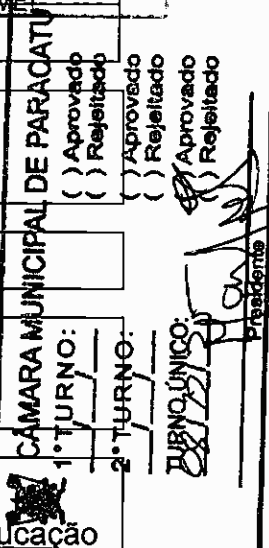 CÂMARA MUNICIPAL DE PARACATU
1° TURNO: ( ) Aprovado
__/__/__ ( ) Rejeitado
2° TURNO: ( ) Aprovado
__/__/__ ( ) Rejeitado
TURNO ÚNICO: ( ) Aprovado
( ) Rejeitado
Presidente
ucação